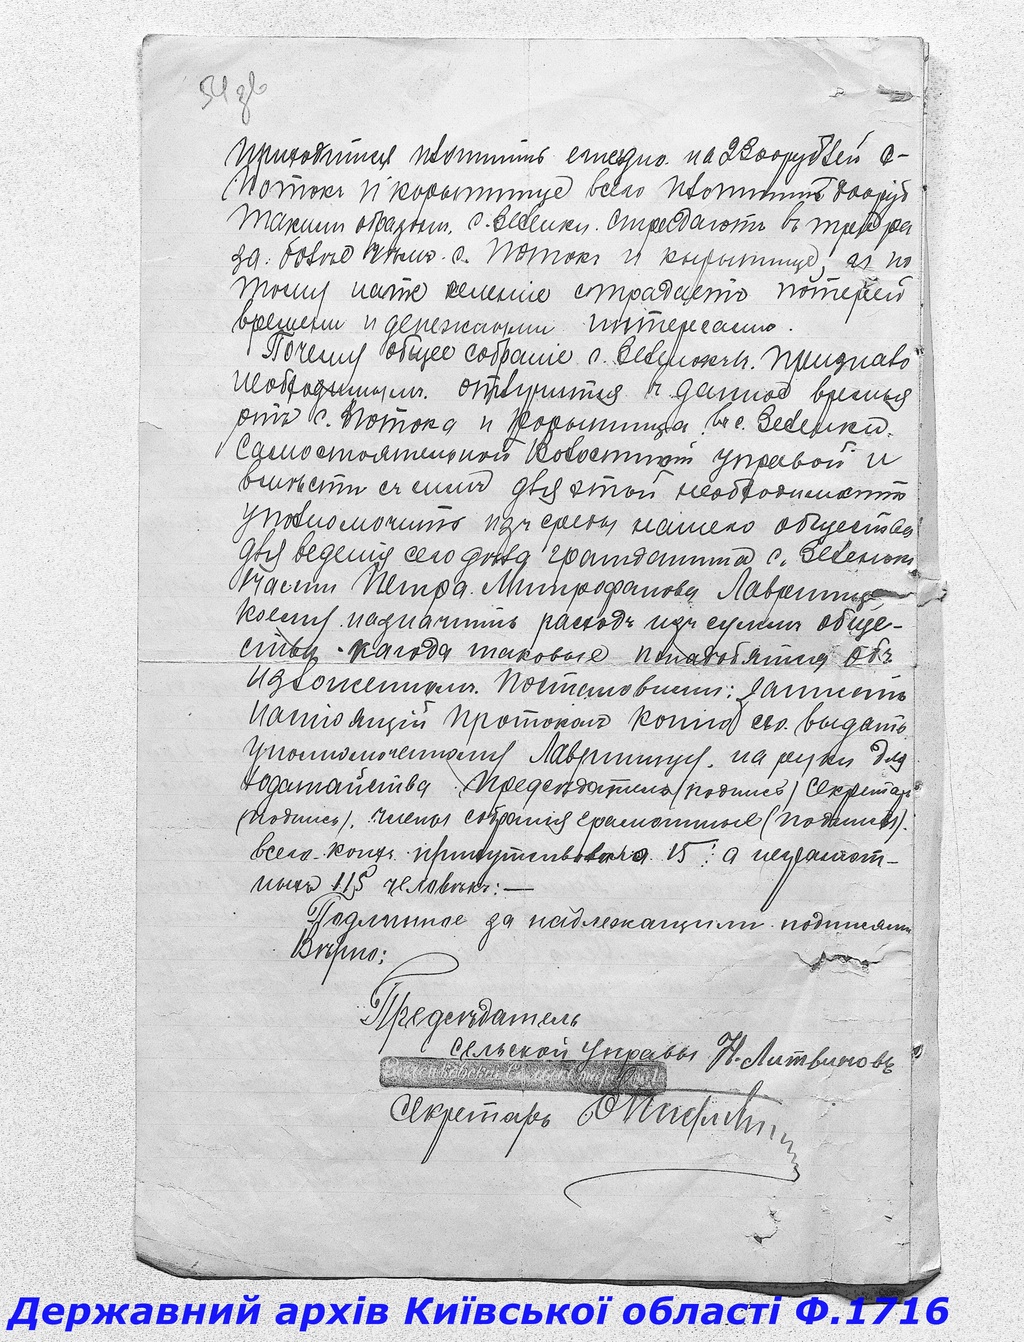 54 зв
приходится платить ежедно. на 2300 рублей с-
Потокъ и корытище всего платить 700 руб
Такимъ образом. с. Зеленки. страдаютъ въ три ра
за. более чѣмъ с. Потокъ и корытище, а по
тому наше селеніе страдаетъ потерей
времени и денежными интересами.
Почему общее собраніе с. Зеленькы. признало
необходимымъ. отлучится в данное время
отъ с. Потока и Корытища. въ с. Зеленки.
самостоятельной Волостной управой и
вместе съ симъ для этой необходимости
уполномочить изъ среды нашего общества
для веденія сего дѣла гражданина с. Зеленьки
части Петра Митрофанова Лавриненко
коему назначить расходъ изъ суммъ обще-
ства. когда таковые понадобятся Объ
изложенномъ. Постановили: записать
настоящій протоколъ копію съ него выдать
уполномоченному Лавриненку. на руки для
ходатайства. Предсѣдатель (подпись) Секретарь
(подпись). члены собранія грамотные (подписи).
всего коихъ присутствовало 15. а неграмот-
ныхъ 115 человѣкъ: —
Подлинное за надлежащими подписями
Вѣрно:
Предсѣдатель
сельской управы Н. Литвиновъ
Секретарь
Державний архів Київської області Ф.1716